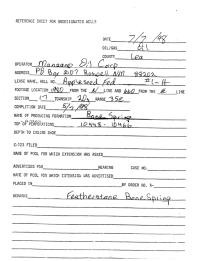 REFERENCE SHEET FOR UNDESIGNATED WELLS
DATE 7/7/98
OIL/GAS Oil
COUNTY Lea
OPERATOR Manzano Oil Corp
ADDRESS PO Box 2107 Roswell NM 88202
LEASE NAME, WELL NO. Appleseed Fed #1-H
FOOTAGE LOCATION FROM THE N LINE AND 660 FROM THE E LINE
SECTION 17 TOWNSHIP 20s RANGE 35e
COMPLETION DATE 5/7/98
NAME OF PRODUCING FORMATION Bone Spring
TOP OF PERFORATIONS 10448-10466
DEPTH TO CASING SHOE
C-123 FILED
NAME OF POOL FOR WHICH EXTENSION WAS ASKED
ADVERTISED FOR HEARING CASE NO.
NAME OF POOL FOR WHICH EXTENSION WAS ADVERTISED
PLACED IN BY ORDER NO. R-
REMARKS Featherstone Bone Spring